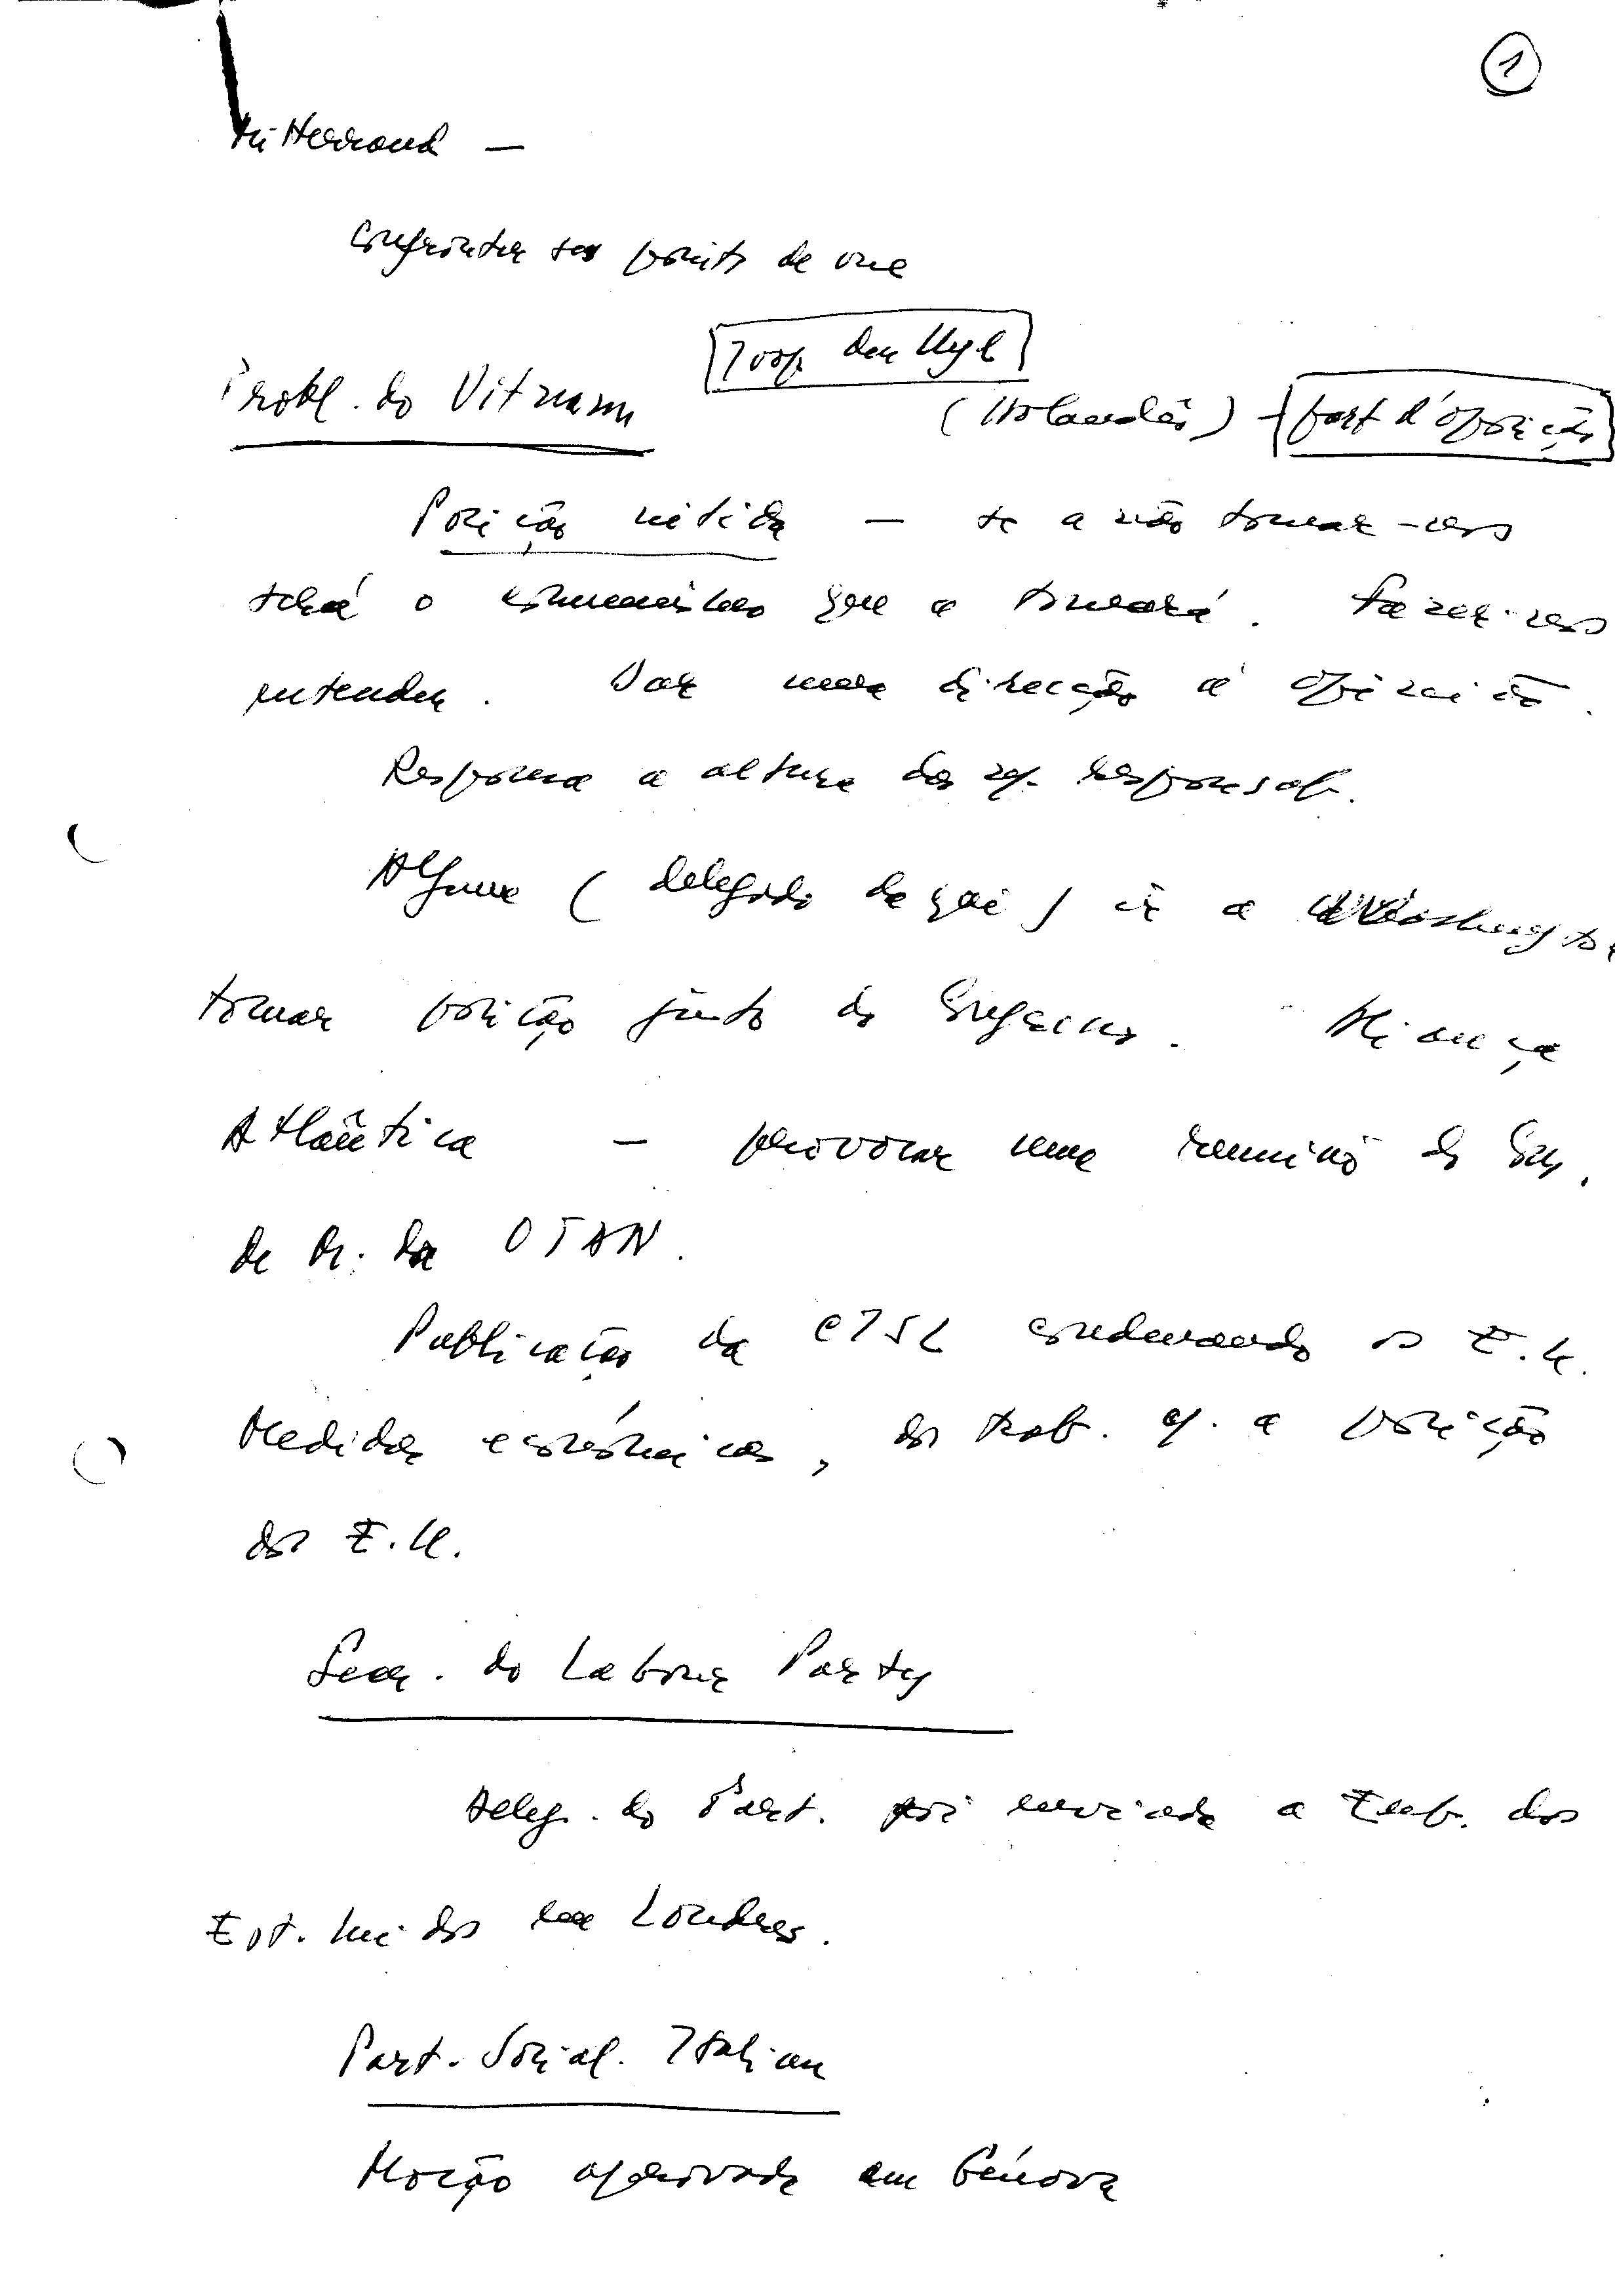 1
Mitterrand —
Confronter ses points de vue
Joop den Uyl
Probl. do Vitnam
(Holandês) – part d'oposição
Posição nitida — se a não tomar-mos
será o comunismo que a tomará. Fazer-nos
entender. Dar uma direcção á opinião.
Resposta a altura das n/. responsab.
Alguem (delegado daqui) ir a Washington
tomar posição junto do Congresso. Aliança
Atlântica — provocar uma reunião do
de M. da OTAN.
Publicação da CISL condenando os E.U.
Medidas económicas, dos trab. c/. a posição
dos E.U.
Secr. do Labour Party
Deleg. do Part. foi enviada a Emb. dos
Est. Unidos em Londres.
Part. Social. Italian
Moção aprovada em Génova